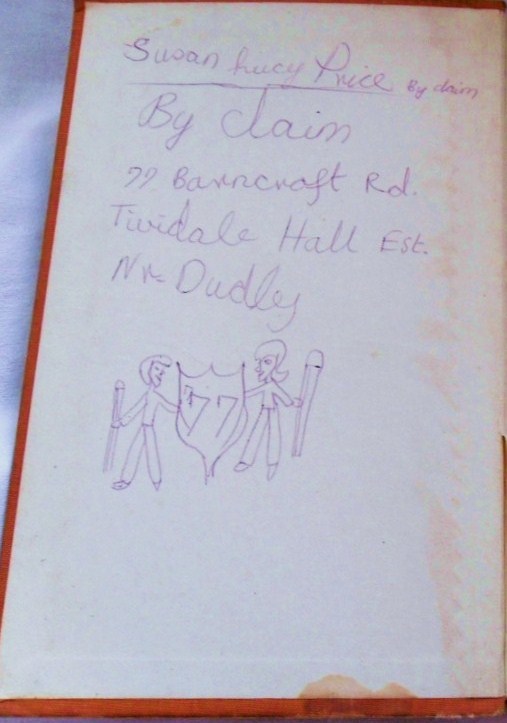 Susan Lucy Price By claim
By claim
77 Barncroft Rd.
Tividale Hall Est.
Nr. Dudley
77